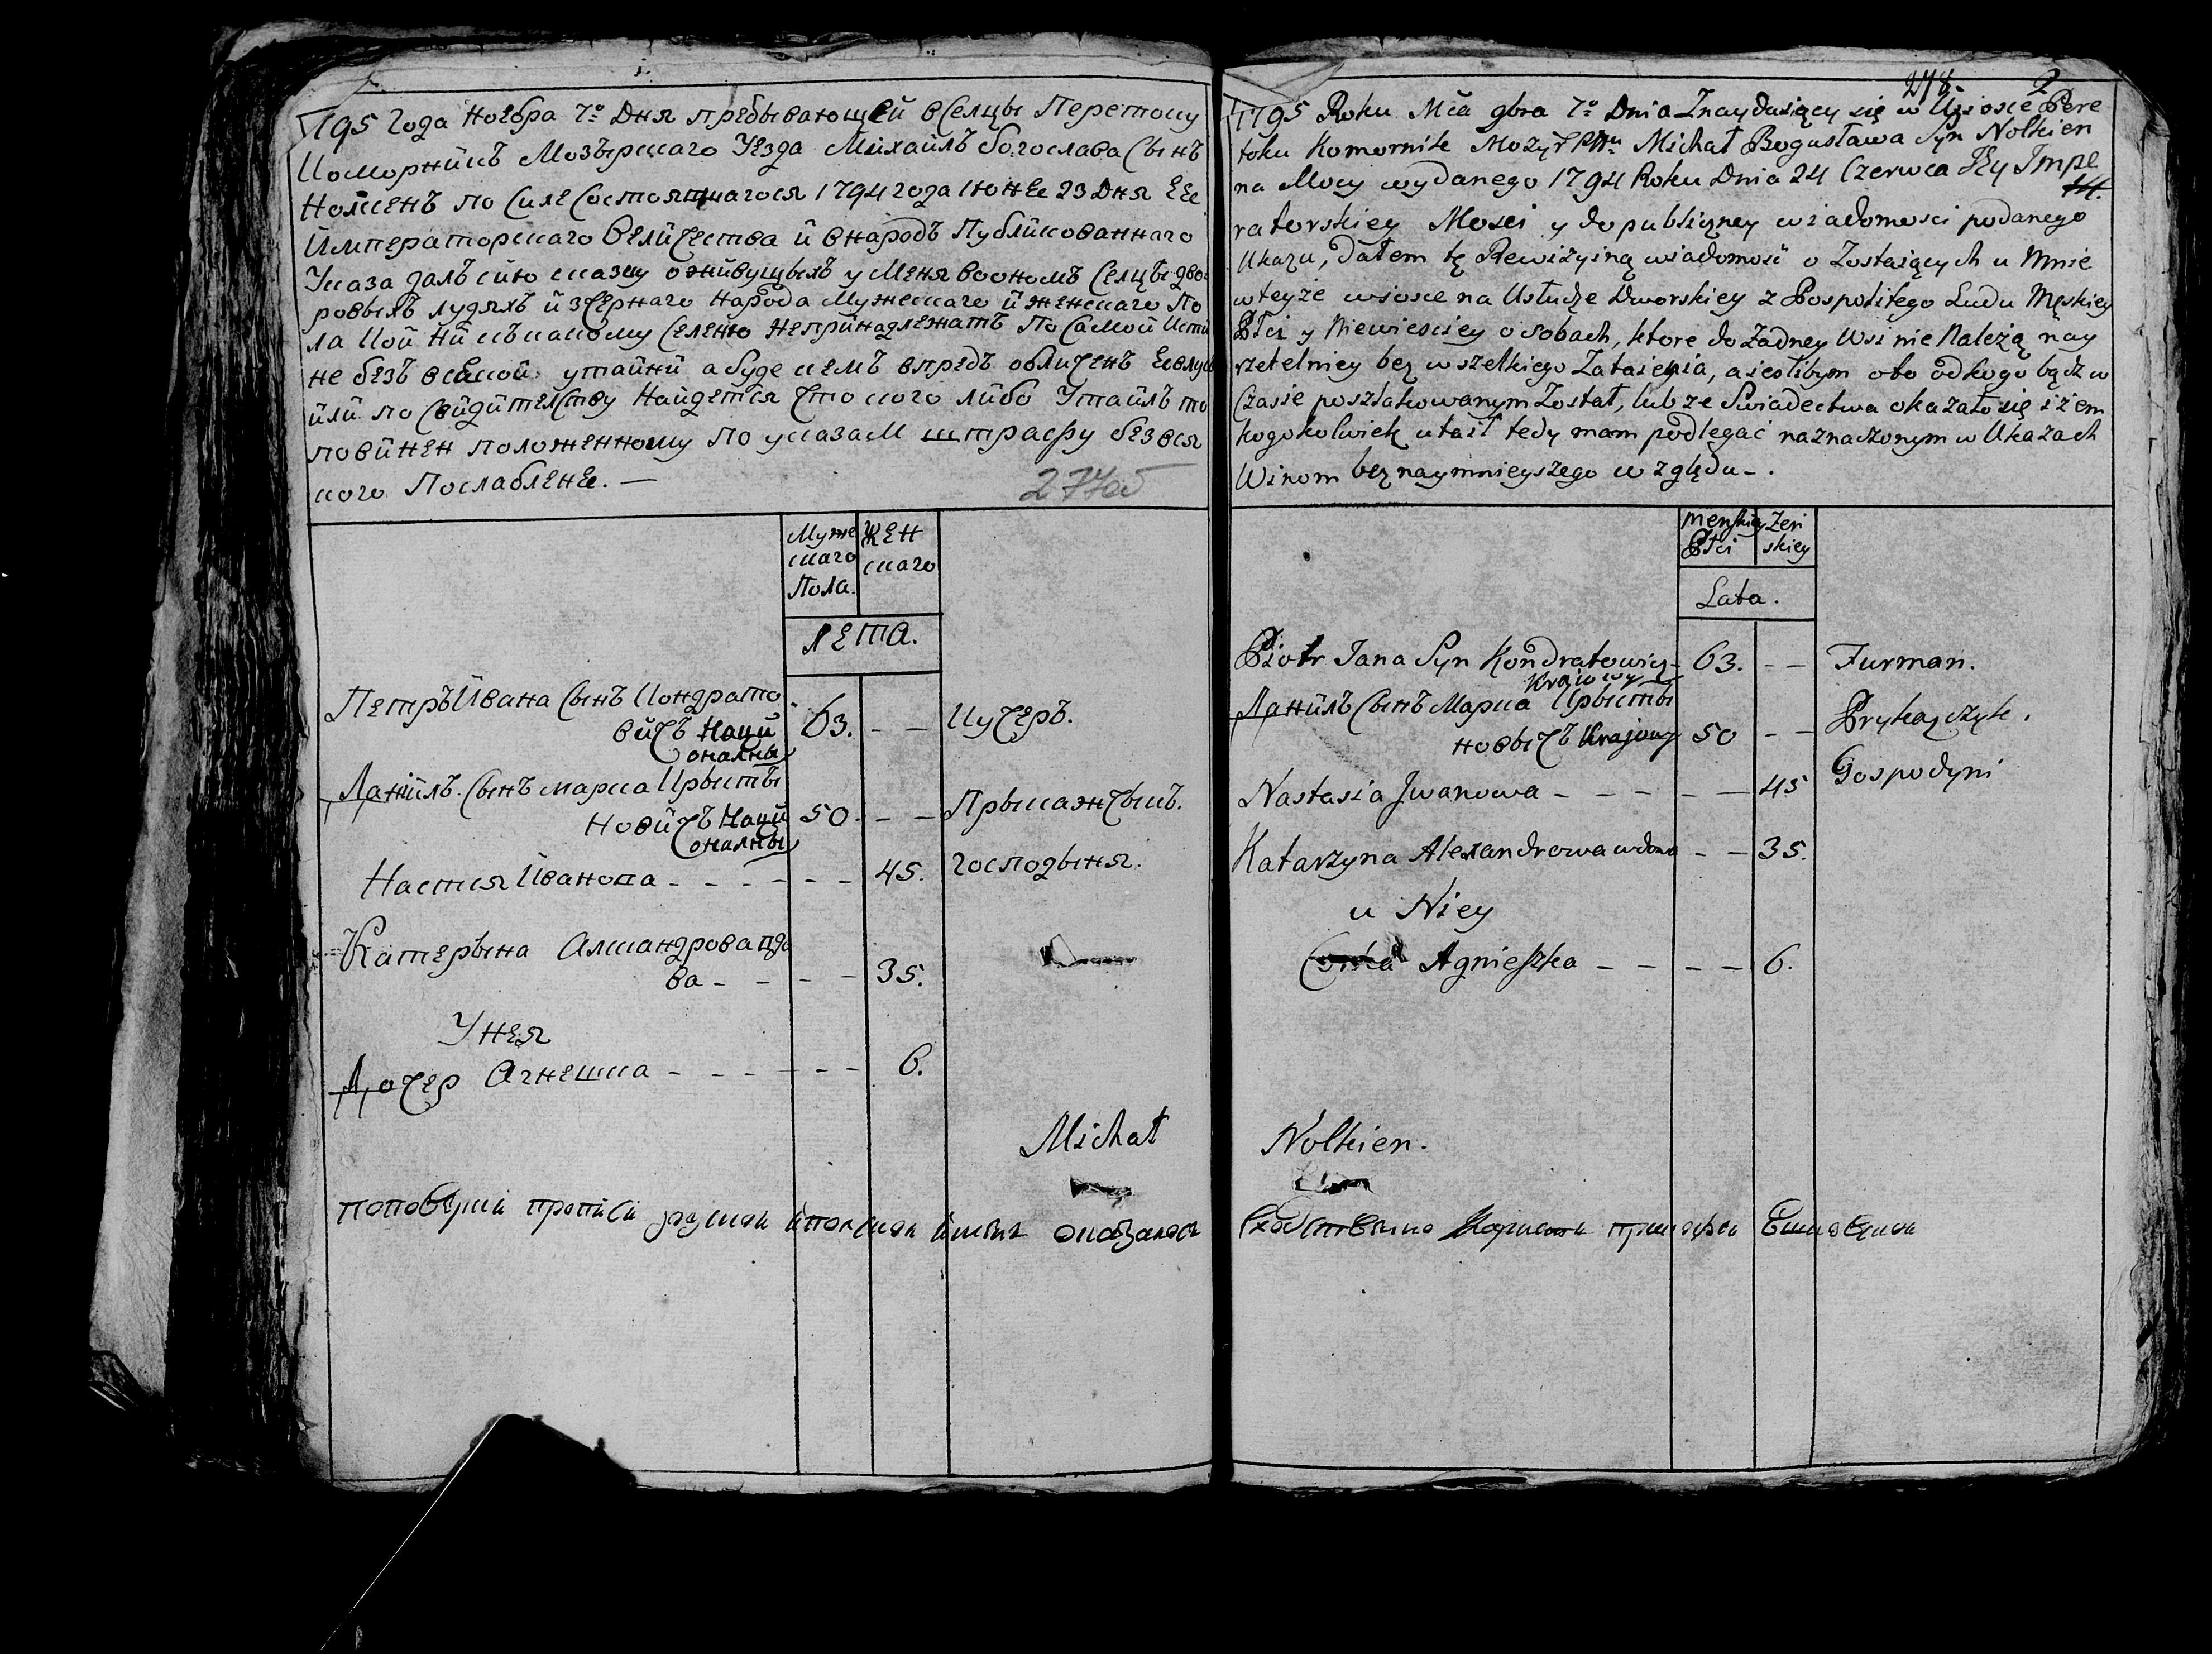 1795 года ноебра 7º дня пребывающей в селцы Перетоку
Коморникъ Мозырскаго Уезда Михайлъ богослава сынъ
Нолкенъ по силе состоящагося 1794 года июнее 23 дня ее
императорскаго величества и внародъ публикованнаго
Указа далъ сию сказку о живущыхъ у меня воономъ селцы дво
ровыхъ лудяхъ и зчернаго народа мужескаго и женскаго по
ла кои ни къ какому селению непринадлежатъ по самой исти
не безъ всякой утайки а буде кемъ впредъ обличенъ
или по свидителству найдется что кого либо утаилъ то
повинен положенному по указам штрафу безвся
кого послаблене. —
277об
Муже
скаго
пола.
жен
скаго
лета.
Петръ Ивана сынъ Кондрато
вичъ наци
оналны
63. - - Кучеръ.
Данилъ сынъ марка Крысты
новичъ наци
оналны
50 - - Прыкажчыкъ.
Настся Иванова - - - - - - 45. господыня.
Катерына Алксандрова вдо
ва - - - - 35.
У нея
Дочер Агнешка - - - - - - 6.
Michał
278. 2
1795 Roku Mca gbra 7º Dnia Znayduiący się w Wiosce Pere
toku Komornik Mozyr Pttu Michał Bogusława Syn Nolkien
na Mocy wydanego 1794 Roku Dnia 24 Czerwca Jey Impe
ratorskiey Mosci y do publiczney wiadomosci podanego
Ukazu, dałem tę Rewizyiną wiadomość o Zostaiących u Mnie
w teyze wiosce na Usłudze Dworskiey z Pospolitego Ludu Męskiey
Płci y Niewiesciey osobach, ktore do żadney Wsi nie Należą nay
rzetelniey bez wszelkiego Zataienia, a iesłibym oto od kogo bądz w
Czasie poszlakowanym Został, lub ze Swiadectwa okazało się iżem
kogokolwiek utaił tedy mam podlegać naznaczonym w Ukazach
Winom bez naymnieyszego względu - .
Menskiey
Płci
Zen
skiey
Lata.
Piotr Jana Syn Kondratowicz - 63. - - Furman.
Krajowy
Данилъ сынъ Марка Крысты
новычъ Krajowy 50 - - Prykazczyk.
Nastasia Jwanowa - - - - - 45 Gospodyni
Katarzyna Alexandrowa wdowa - - 35.
u Niey
Corka Agnieszka - - - - 6.
Nolkien.